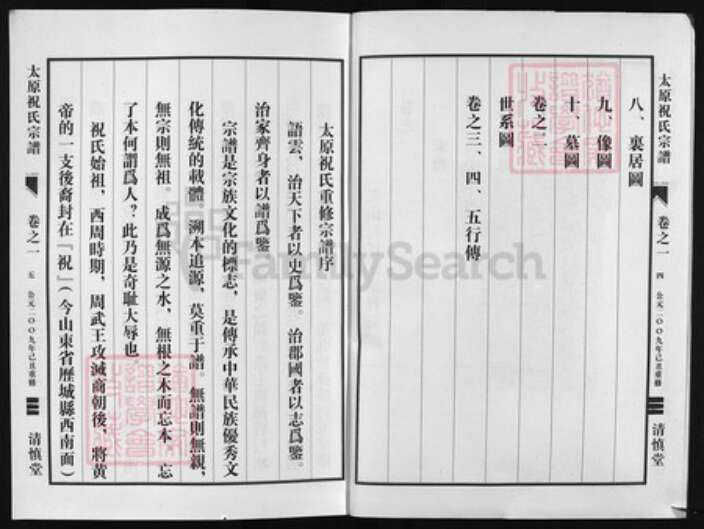 太原祝氏宗譜
卷之一
四
公元二〇〇九年己丑重修
清慎堂
八、裏居圖
九、像圖
十、墓圖
卷之二
世系圖
卷之三、四、五行傳
太原祝氏重修宗譜序
語雲，治天下者以史爲鑒。治郡國者以志爲鑒。
治家齊身者以譜爲鑒
宗譜是宗族文化的標志，是傳承中華民族優秀文
化傳統的載體，溯本追源，莫重于譜。無譜則無親，
無宗則無祖。成爲無源之水，無根之木而忘本，忘
了本何謂爲人？此乃是奇耻大辱也。
祝氏始祖，西周時期，周武王攻滅商朝後，將黄
帝的一支後裔封在「祝」（今山東省歷城縣西南面）
太原祝氏宗譜
卷之一
五
公元二〇〇九年己丑重修
清慎堂
FamilySearch